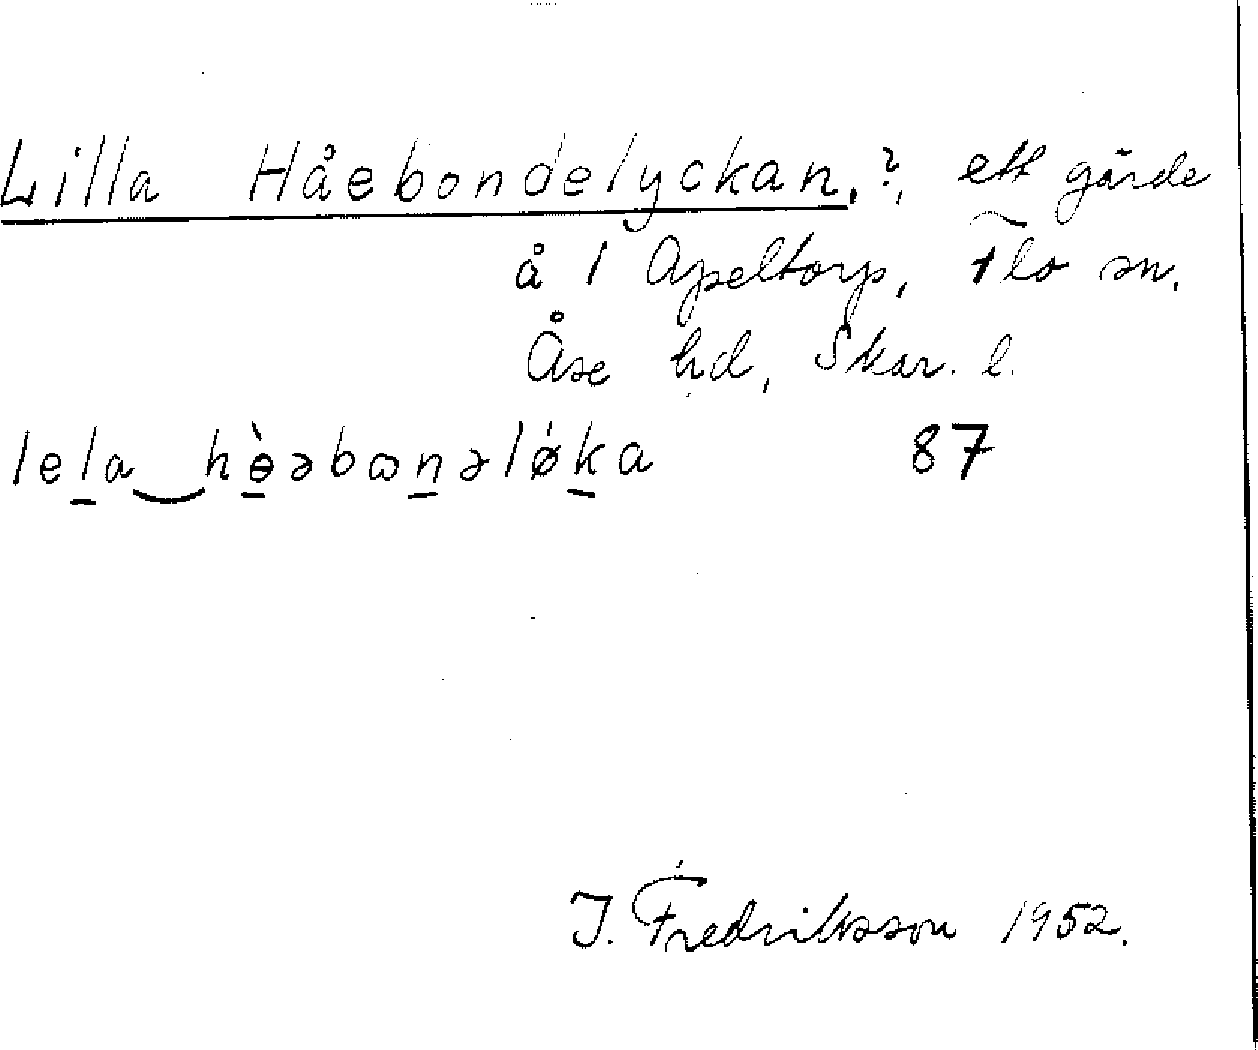 Lilla Håebondelyckan, ?, ett gärde
å 1 Apeltorp, Flo sn.
Åse hd, Skar. l.
lela‿hɵ̀əbɷnəlǿka 87
J. Fredriksson 1952.